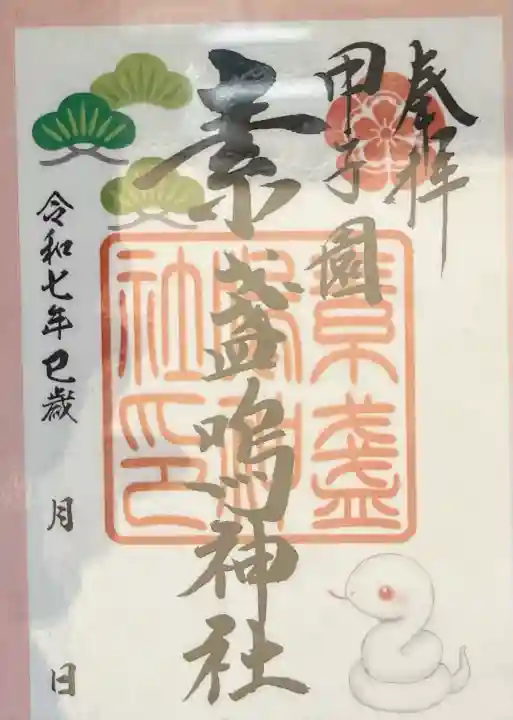 奉拝
甲子園
素盞嗚神社
素盞
嗚神
社印
令和七年巳歳
月
日